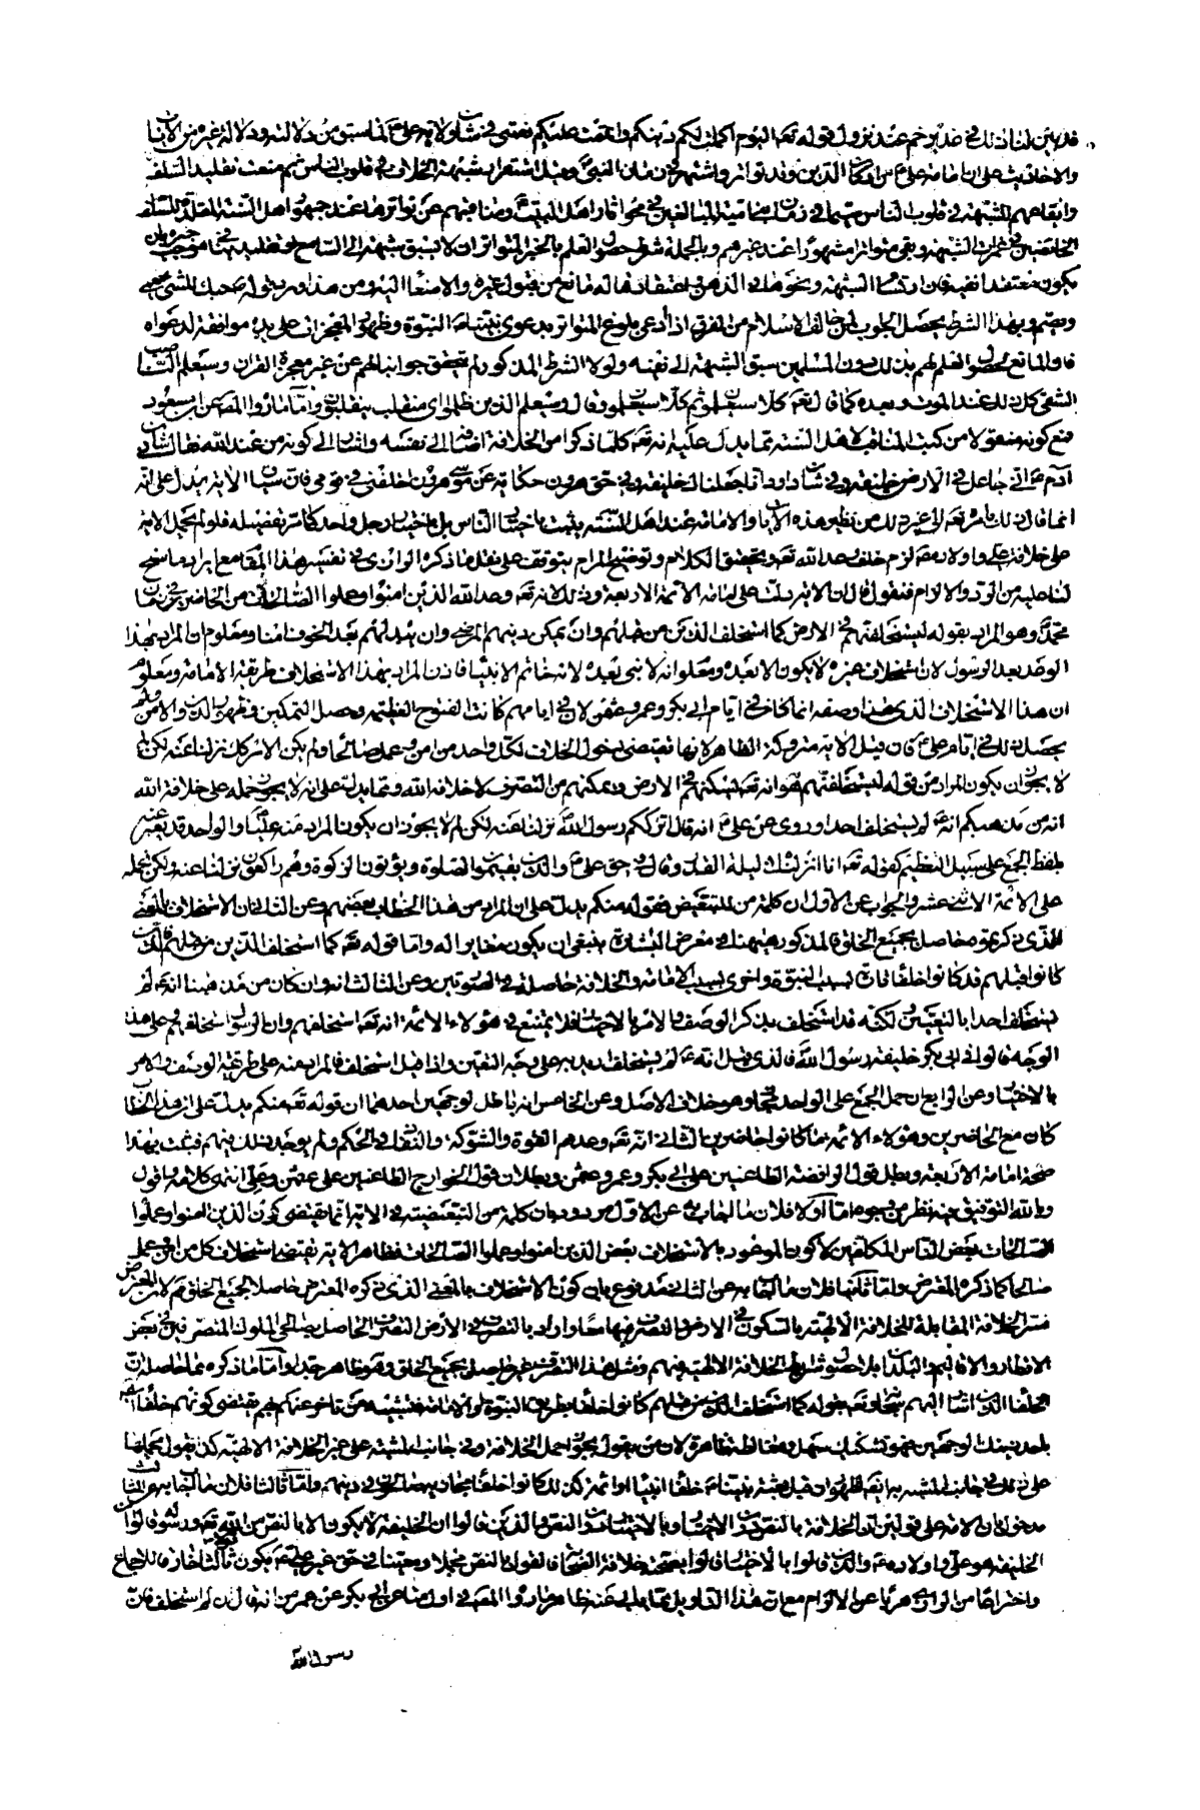 قد بين لنا ذلك في غدير خم عند نزول قوله تعه اليوم اكملت لكم دينكم واتممت عليكم نعمتي في شان ولايه علي ع لما سبق من دلالته ودلالة غيره من الايات
والاحاديث على ان امامة علي ع من اركان الدين وقد تواتر واشتهر في زمان النبي وقبل استقرار شبهة الخلاف في قلوب الناس ثم منعت تقليد السلف
وايقاعهم الشبهة في قلوب الناس سيما في زمان بني امية المبالغين في محو اثار اهل البيت ومناقبهم عن تواترها عند جمهور اهل السنة المقلدة للسلف
الخائضين في غمرات الشبهة وبقي متواترا مشهورا عند غيرهم وبالجملة شرط حصول العلم بالخبر المتواتر ان لا يسبق شبهة الى السامع او تقليد ينافي موجب خبره بان
يكون معتقدا نفيه فان ارتسام الشبهة ونحوها في الذهن واعتقادها له مانع من قبول غيره والاصغاء اليه ومن هذا مر بقوله ص حبك للشيء يعمي
ويصم وبهذا الشرط يحصل الجواب لمن خالف الاسلام من الفرق اذا ادعى بلوغ المتواتر بدعوى نبينا ع النبوة وظهور المعجزات على يده موافقة لدعواه
فان المانع لحصول العلم لهم بذلك دون المسلمين سبق الشبهة الى نفيه ولولا الشرط المذكور لم يتحقق جوابنا لهم عن غير معجزة القران وسيعلم الناصب
الشقي كل ذلك عند الموت وبعده كما قال تعه كلا سيعلمون ثم كلا سيعلمون وقال وسيعلم الذين ظلموا اي منقلب ينقلبون واما ما رواه المص عن ابن مسعود
فمع كونه منقولا من كتب المناقب لاهل السنة مما يدل عليه انه تعه كلما ذكر امر الخلافة اضاف الى نفسه واشار الى كونه من عند الله فقال في شان
ادم ع اني جاعل في الارض خليفة وفي شان داود انا جعلناك خليفة وفي حق هرون حكاية عن موسى هرون اخلفني في قومي فان سياق الاية يدل على انه
انما قال ذلك بامره تعه الى غير ذلك من نظير هذه الايات والامامة عند اهل السنة يثبت باختيار الناس بل باختيار رجل واحد كما مر تفصيله فلو لم يحمل الاية
على خلافة علي واولاده ع لزم خلف وعد الله تعه وتحقيق الكلام وتوضيح المرام يتوقف على نقل ما ذكره الرازي في تفسير هذا المقام مع ايراد ما سنح
لنا عليه من الرد والالزام فنقول قال ان الاية دلت على امامة الائمة الاربعة وذلك لانه تعه وعد الله الذين امنوا وعملوا الصالحات من الحاضرين في زمان
محمد ص وهو المراد بقوله ليستخلفنهم في الارض كما استخلف الذين من قبلهم وان يمكن دينهم المرضي وان يبدلهم بعد الخوف امنا ومعلوم ان المراد بهذا
الوعد بعد الرسول لان استخلاف غيره لا يكون الا بعده ومعلوم انه لا نبي بعده لانه خاتم الانبياء فاذن المراد بهذا الاستخلاف طريقة الامامة ومعلوم
ان هذا الاستخلاف الذي هذا وصفه انما كان في ايام ابي بكر وعمر وعثمن لان في ايامهم كانت الفتوح العظيمة وحصل التمكين وظهور الدين والامن ولم
يحصل ذلك في ايام علي ع فان قيل الاية متروكة الظاهر لانها تقتضي حصول الخلافة لكل واحد من امن وعمل صالحا ولم يكن الامر كذلك نزلنا عنه لكن لم
لا يجوز ان يكون المراد من قوله ليستخلفنهم هو انه تعه يسكنهم في الارض ويمكنهم من التصرف لا خلافة الله ومما يدل على انه لا يجوز حمله على خلافة الله
انه من مذهبكم انه ع لم يستخلف احدا وروي عن علي ع انه قال اترككم كما ترككم رسول الله ص نزلنا عنه لكن لم لا يجوز ان يكون المراد منه عليا والواحد قد يعبر عنه
بلفظ الجمع على سبيل التعظيم كقوله تعه انا انزلناه في ليلة القدر وقال في حق علي ع والذين يقيمون الصلوة ويؤتون الزكوة وهم راكعون نزلنا عنه ولكن نحمله
على الائمة الاثنى عشر والجواب عن الاول ان كلمة من للتبعيض فقوله منكم يدل على ان المراد من هذا الخطاب بعضهم وعن الثاني ان الاستخلاف بالمعنى
الذي ذكرتموه حاصل لجميع الخلق فالمذكور ههنا في معرض البشارة ينبغي ان يكون مغايرا له واما قوله تعه كما استخلف الذين من قبلهم فالذين
كانوا قبلهم قد كانوا خلفاء تارة بسبب النبوة واخرى بسبب الامامة والخلافة حاصلة في الصورتين وعن الثالث انه وان كان من مذهبنا انه ع لم
يستخلف احدا بالتعيين لكنه قد استخلف بذكر الوصف والامر بالاختيار فلا يمتنع في هؤلاء الائمة انه تعه استخلفهم وان الرسول استخلفهم وعلى هذا
الوجه قالوا في ابي بكر خليفة رسول الله فالذي قيل انه ع لم يستخلف اريد به على وجه التعيين واذا قيل استخلف فالمراد منه على طريقة الوصف والامر
بالاختيار وعن الرابع ان حمل الجمع على الواحد مجاز وهو خلاف الاصل وعن الخامس انه باطل لوجهين احدهما ان قوله تعه منكم يدل على ان هذا الخطاب
كان مع الحاضرين وهؤلاء الائمة ما كانوا حاضرين الثاني انه تعه وعدهم القوة والشوكة والنفاذ في الحكم ولم يوجد ذلك فيهم فثبت بهذا
صحة امامة الاربعة وبطل قول الرافضة الطاعنين على ابي بكر وعمر وعثمن وبطلان قول الخوارج الطاعنين على عثمن وعلي انتهى كلامه واقول
وبالله التوفيق فيه نظر من وجوه اما اولا فلان ما اجاب به عن الاول مردود بان كلمة من التبعيضية في الاية انما يقتضي كون الذين امنوا وعملوا
الصالحات بعض الناس المكلفين لا كون الموعود بالاستخلاف بعض الذين امنوا وعملوا الصالحات فظاهر الاية يقتضي استخلاف كل من امن وعمل
صالحا كما ذكره المعترض واما ثانيا فلان ما اجاب به عن الثاني مدفوع بان كون الاستخلاف بالمعنى الذي ذكره المعترض حاصلا لجميع الخلق ثم لان المعترض
فسر الخلافة المقابلة للخلافة الالهية بالسكون في الارض والتصرف فيها معا واراد بالتصرف في الارض التصرف الحاصل لصالحي الملوك المتصرفين في بعض
الاقطار والاقاليم والبلدان بلا حصول شرايط الخلافة الالهية فيهم ومثل هذا التصرف غير حاصل لجميع الخلق وهو ظاهر جدا واما ما ذكره مما حاصله ان
الخلفاء الذين اشار اليهم سبحانه وتعه بقوله كما استخلف الذين من قبلهم كانوا خلفاء بطريق النبوة او الامامة فتشبيه من تاخر عنهم بهم يقتضي كونهم خلفاء الله
باحد ذينك الوجهين فهو تشكيك سهل ومغالطة ظاهرة لان من يقول بجواز حمل الخلافة في جانب المشبه على غير الخلافة الالهية كذا يقول بحملها
على ذلك في جانب المشبه به ايضا لظهور ان قبل بعثة نبينا ع خلفاء انبياء او ائمة كذلك كانوا خلفاء مجازيين صالحين في دينهم واما ثالثا فلان ما اجاب به عن الثالث
مدخول بان الامة على قولين في الخلافة بالنص دون الاختيار وبالاختيار دون النص والذين قالوا ان الخليفة لا يكون الا بالنص من الله تعه ورسوله قالوا ان
الخليفة هو علي واولاده ع والذين قالوا بالاختيار قالوا بصحة خلافة الصحابة فالقول بالنص مجملا ومعينا في حق غير علي ع يكون قولا ثالثا خارقا للاجماع
واختراعا من الرازي هربا عن الالزام مع ان هذا التاويل مما يابى عنه ظاهر ما رواه المص في اول مطاعن ابي بكر عن عمر من انه قال ان لم استخلف فان
رسول الله